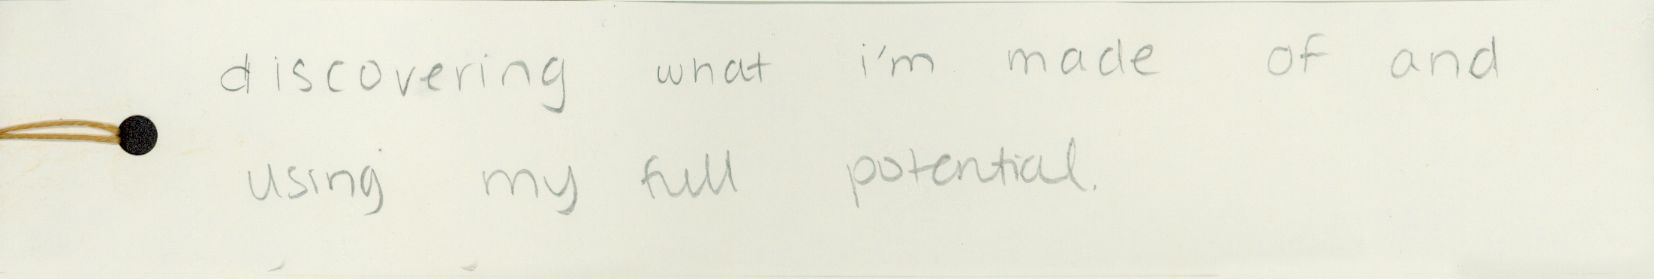 discovering what i'm made of and
using my full potential.